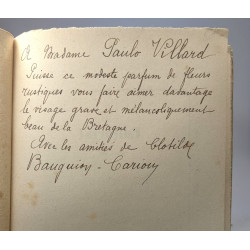 A Madame Paulo Villard
Puisse ce modeste parfum de fleurs
rustiques vous faire aimer davantage
le visage grave et mélancoliquement
beau de la Bretagne.
Avec les amitiés de Clotilde
Bauguion-Cariou